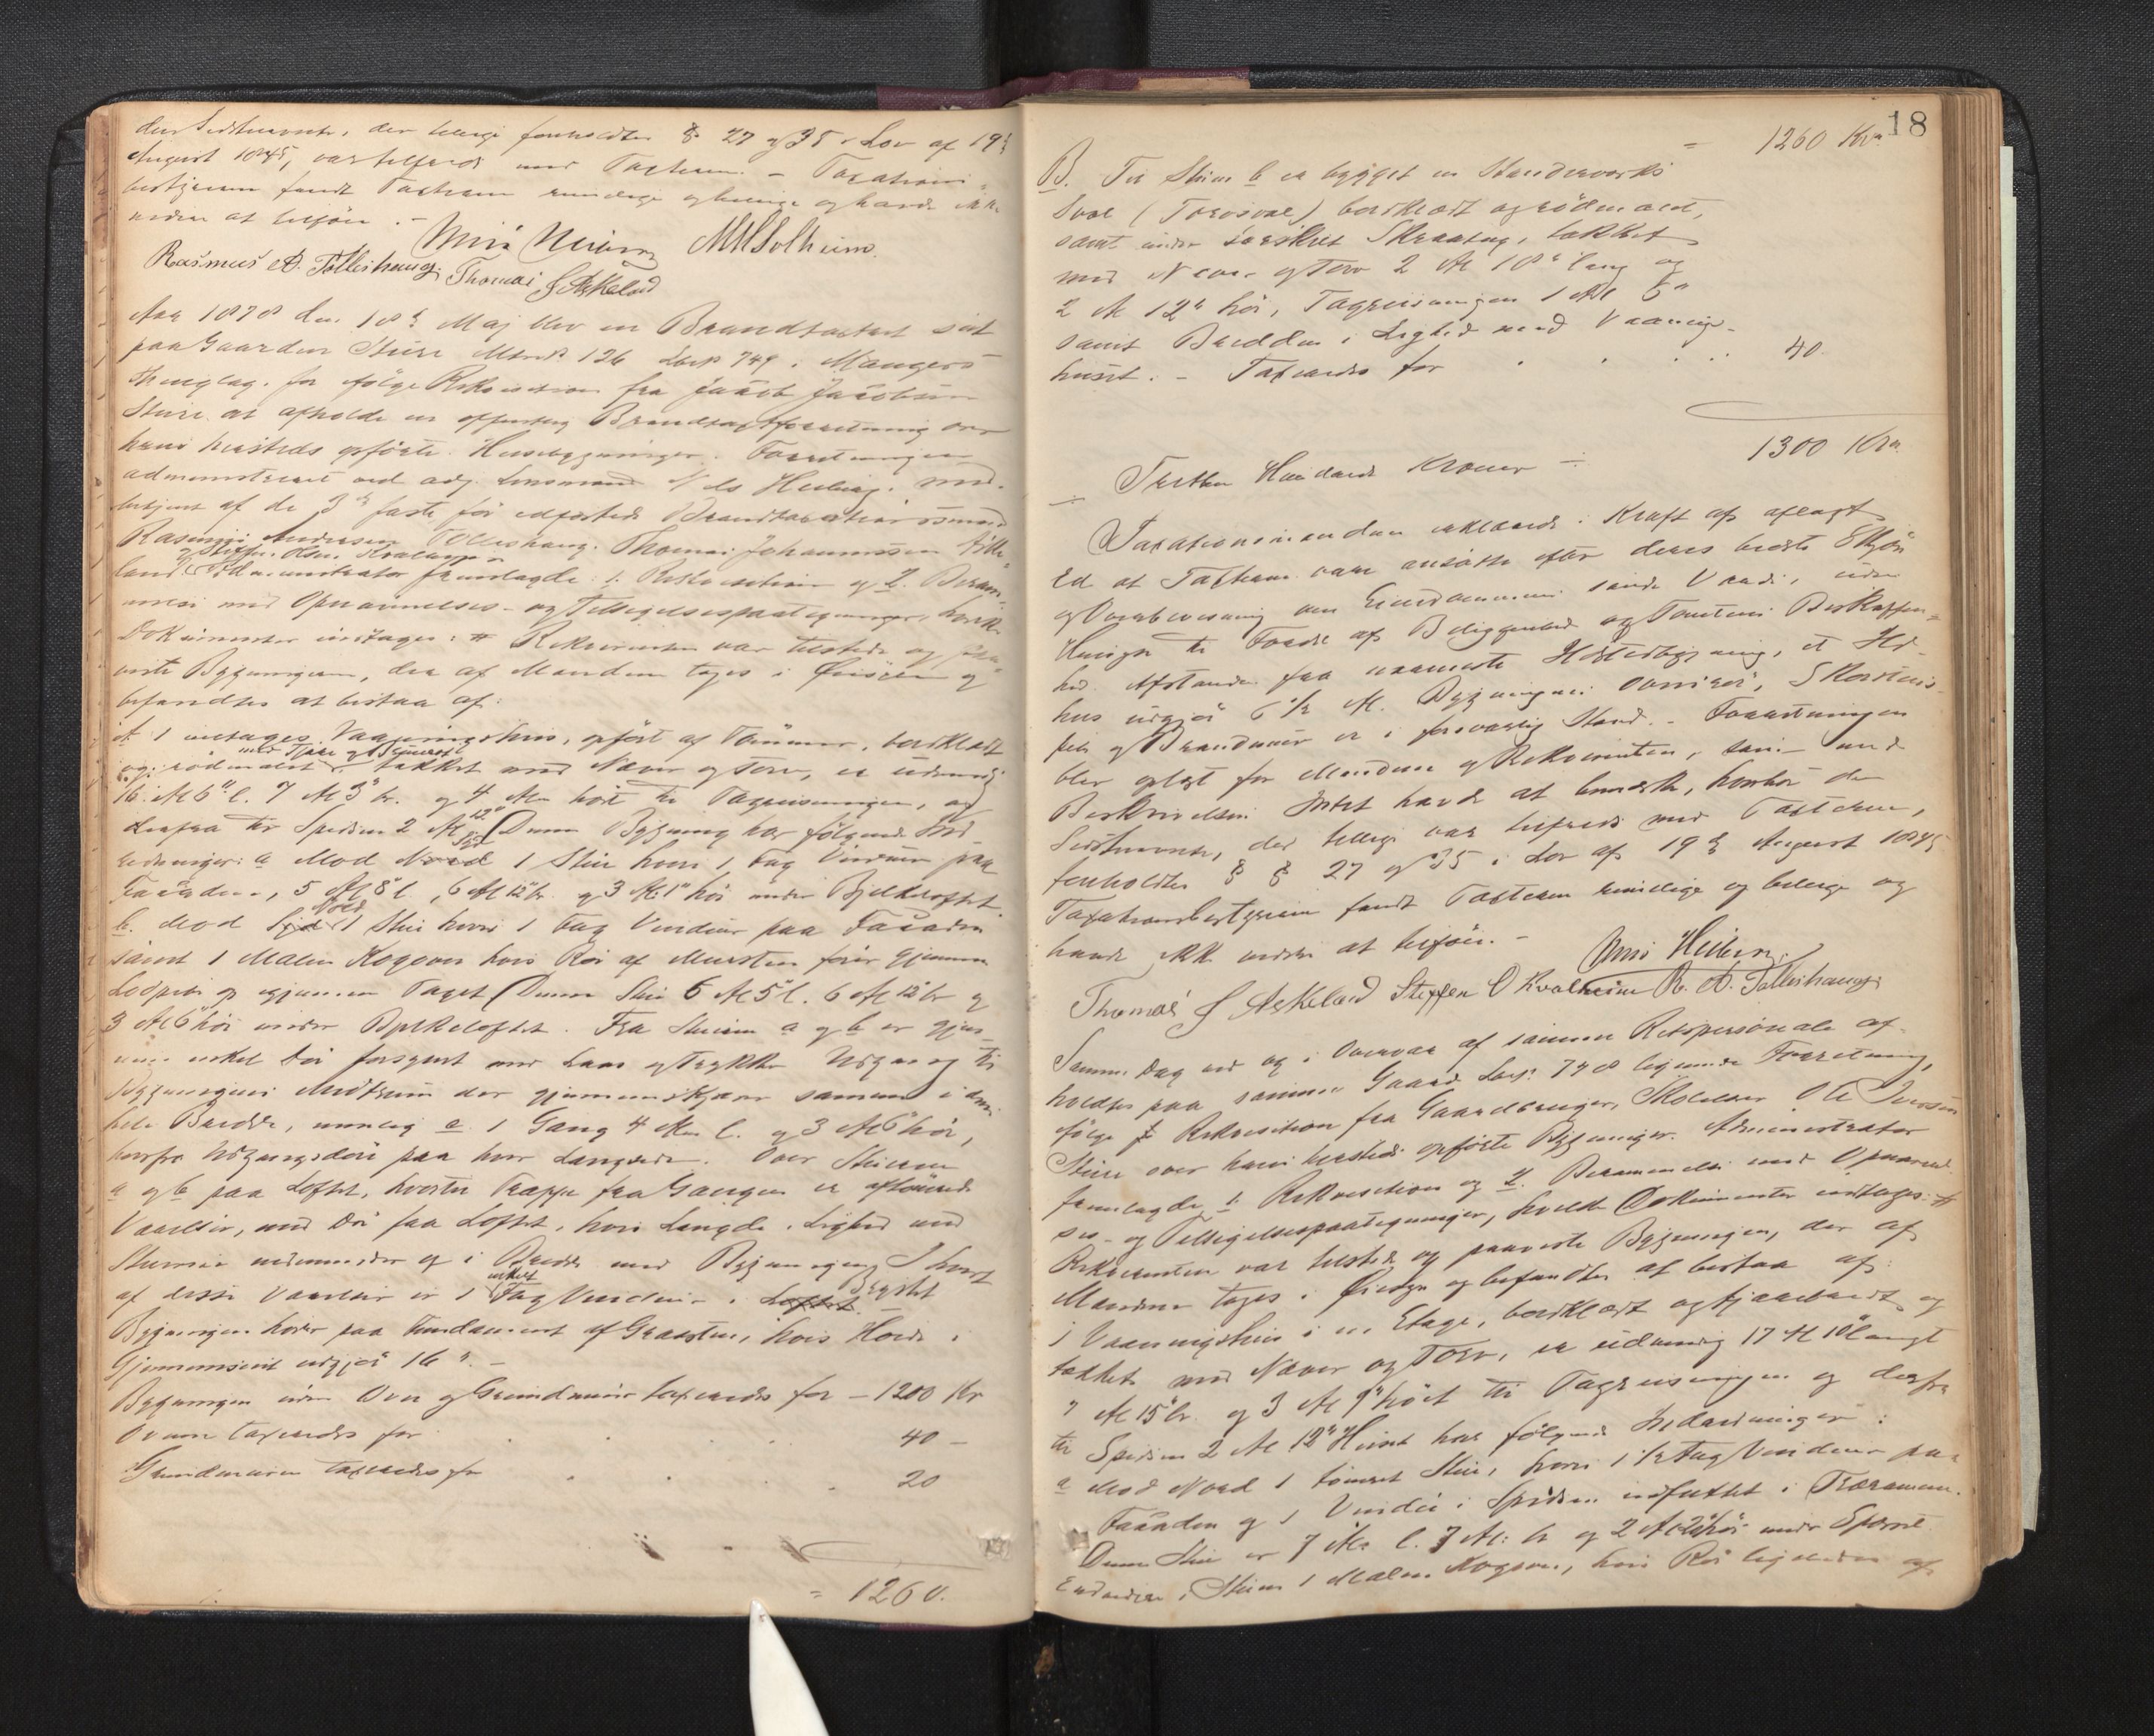 der tillige foreholdtes § 27 og 35 i Lov af 19de
August 1845, var tilfreds med Taxten. – Taxations-
bestyreren fandt Taxterne rimelige og billige og havde ikke
videre at tilføie. –
MMSolheim.
Rasmus A. Tølleshaug. Thomas J Askeland
Aar 1878 den 18de Maj blev en Brandtaxtret sat
paa Gaarden Sture Matr. No 126 Løbe No 749 i Mangers
Thinglag, for ifølge Rekvisition fra Jacob Jacobsen
Sture at afholde en offentlig Brandtaxtforretning over
hans hersteds opførte Huusbygninger. Forretningen
administreret ved Lensmand Nils Heiberg, med-
betjent af de 3de faste før edfæstede Brandtaxationsmænd
Rasmus Andersen Tølleshaug, Thomas Johannessen Aske-
og Steffen Olsen Kvalheim
land. Administrator fremlagde: 1. Rekvisition og 2. Beram-
melse med Opnævnelses- og Tilsigelsespaategninger, hvilke
Dokumenter indtages: # Rekvirenten var tilstede og paa-
viste Bygningerne, der af Mændene toges i Øiesyn og
befandtes at bestaa af:
A 1 Vaaningshus, opført af Tømmer, bordklædt
og rødmalet, takket med Næver og Torv, er udvendig
16 Al 6" l. 7 Al 3" br. og 4 Alen høit til Tagreisningen, og
derfra til Spidsen 2 Al 12" Denne Bygning har følgende Ind-
Syd
redninger: a Mod Nord 1 Stue hvori 1 Fag Vinduer paa
Facaden, 5 Al 8" l, 6 Al 12" br. og 3 Al 1" høi under Bjelkeloftet.
Nord
b. Mod Syd 1 Stue hvori 1 Fag Vinduer paa Facaden
samt 1 Malm Kogeovn hvis Rør af Mursten fører gjennem
Loftet og igjennem Taget (Denne Stue 5 Al 5" l. 6 Al 12" br og
3 Al 6" høi under Bjelkeloftet. Fra Stuerne a og b er gjen-
nem enkel Dør forsynet med Laas og Trykke Udgang til
Bygningens Midtrum der gjennemskjærer samme i dens
hele Bredde, nemlig c. 1 Gang 4 Alen l. og 3 Al 6" høi,
hvorfra Udgangsdøre paa hver Langside. Over Stuerne
a og b paa Loftet, hvortil Trappe fra Gangen er aftømrede
Værelser, med Dør paa Loftet, hvis Længde i Lighed med
Stuerne nedenunder og i Bredde med Bygningen I hvert
enkelt
af disse Værelser er 1 Fag Vinduer i Loftet. Røstet
Bygningen hviler paa Fundament af Graasten, hvis Høide i
Gjennemsnit udgjør 16". –
Bygningen uden Ovn og Grundmuur taxeredes for – 1200 Kr
Ovnen taxeredes for 40 –
Grundmuren taxeredes for 20
= 1260.
18
= 1260 Kr
B. Til Stuen b er bygget en Standerværks
Sval (Torvsval) bordklædt og rødmalet,
samt under særskilt Skraatag, takket
med Næver og Torv 2 Al 18" lang og
2 Al 12" høi, Tagreisningen 1 Al 6"
samt Bredden i Lighed med Vaanings-
huset. – Taxeredes for 40
1300 Kr
Tretten Hundrede Kroner –
Taxationsmændene erklærede i Kraft af aflagt
Ed at Taxterne vare ansatte efter deres bedste Skjøn
og Overbevisning om Eiendommenes sande Værdi, uden
Hensyn til Fordel af Beliggenhed og Tomtens Beskaffen-
hed. Afstanden fra nærmeste Ildstedbygning, et Ild-
hus udgjør 6 1/2 Al. Bygningens Ovnsrør, Skorstens-
pibe og Brandmur er i forsvarlig Stand. – Forretningen
blev oplæst for Mændene og Rekvirenten, som mod
Beskrivelsen Intet havde at bemærke, hvorhos den
Sidstnævnte, der tillige var tilfreds med Taxterne,
foreholdtes § § 27 og 35 i Lov af 19de August 1845
Taxationsbestyreren fandt Taxterne rimelige og billige og
havde ikke videre at tilføie. –
Heiberg.
Thomas J Askeland Steffen O Kvalheim R. A. Tølleshaug
Samme Dag ved og i Overvær af samme Retspersonale af-
holdtes paa samme Gaard Løbe No 748 lignende Forretning,
ifølge Rekvisition fra Gaardbruger, Skolelærer Ole Iversen
Sture over hans hersteds opførte Bygninger. Administrator
fremlagde 1. Rekvisition og 2. Berammelse med Opnævnel-
ses- og Tilsigelsespaategninger, hvilke Dokumenter indtages: #
Rekvirenten var tilstede og paaviste Bygningen, der af
Mændene toges i Øiesyn og befandtes at bestaa af:
1 Vaaningshus i en Etage, bordklædt og tjærebredt og
takket med Næver og Torv, er udvendig 17 Al 10" langt
7 Al 15" br. og 3 Al 9" høit til Tagreisningen og derfra
til Spidsen 2 Al 12" Huset har følgende Indredninger:
a Mod Nord 1 tømret Stue, hvori 1 1/2 Fag Vinduer paa
Facaden og 1 Vindue i Spidsen indfattet i Træramme.
Denne Stue er 7 Al. l. 7 Al. br og 2 Al 22" høi under Sperre
Endvidere i Stuen 1 Malm Kogeovn, hvis Rør ligeledes af